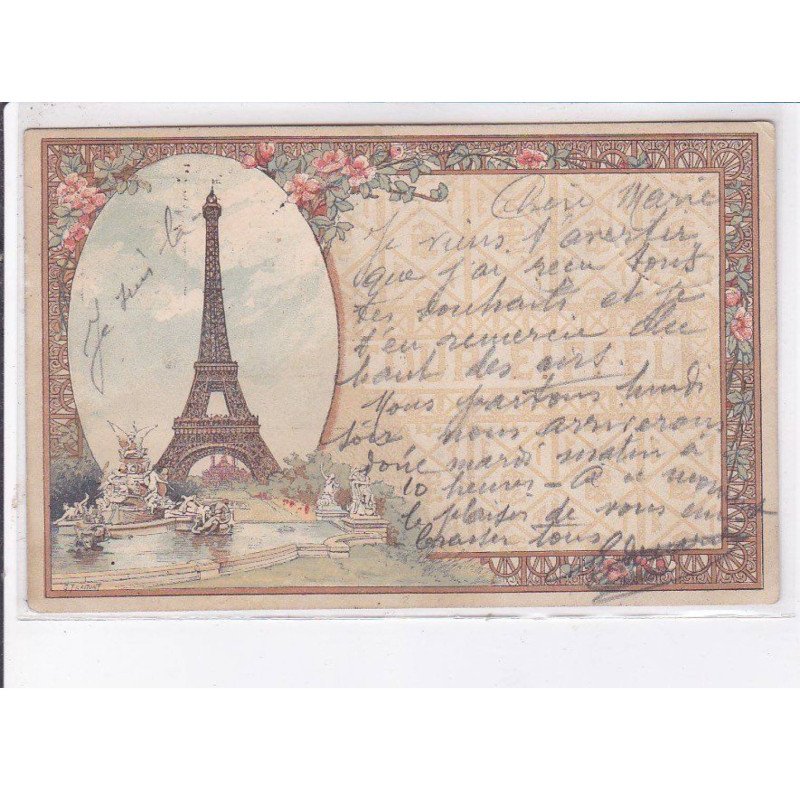 Je suis là
Chère Marie
Je viens t'avertir
que j'ai reçu tous
tes souhaits et je
t'en remercie du
haut des airs.
Nous partons lundi
soir nous arriverons
donc mardi matin à
10 heures - A
le plaisir de vous
tous